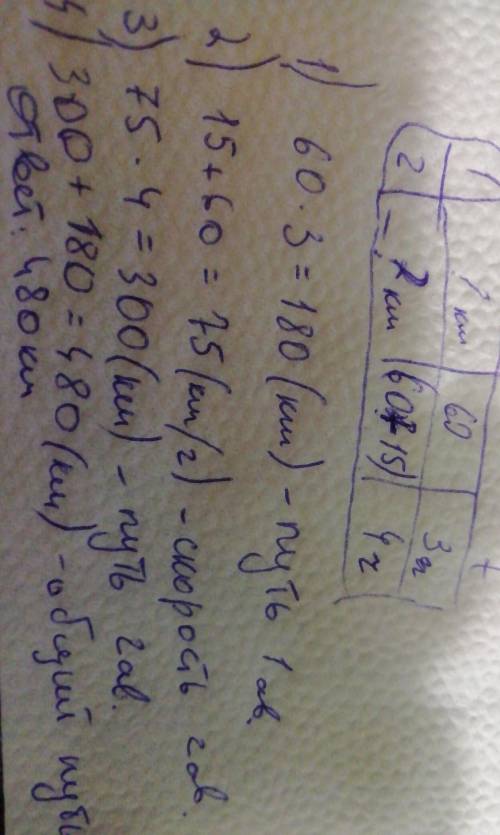 t
1 ? км 60 3 ч
2 ? км (60+15) 4 ч
1) 60 · 3 = 180 (км) - путь 1 ав.
2) 15 + 60 = 75 (км/ч) - скорость 2 ав.
3) 75 · 4 = 300 (км) - путь 2 ав.
4) 300 + 180 = 480 (км) - общий путь
Ответ: 480 км